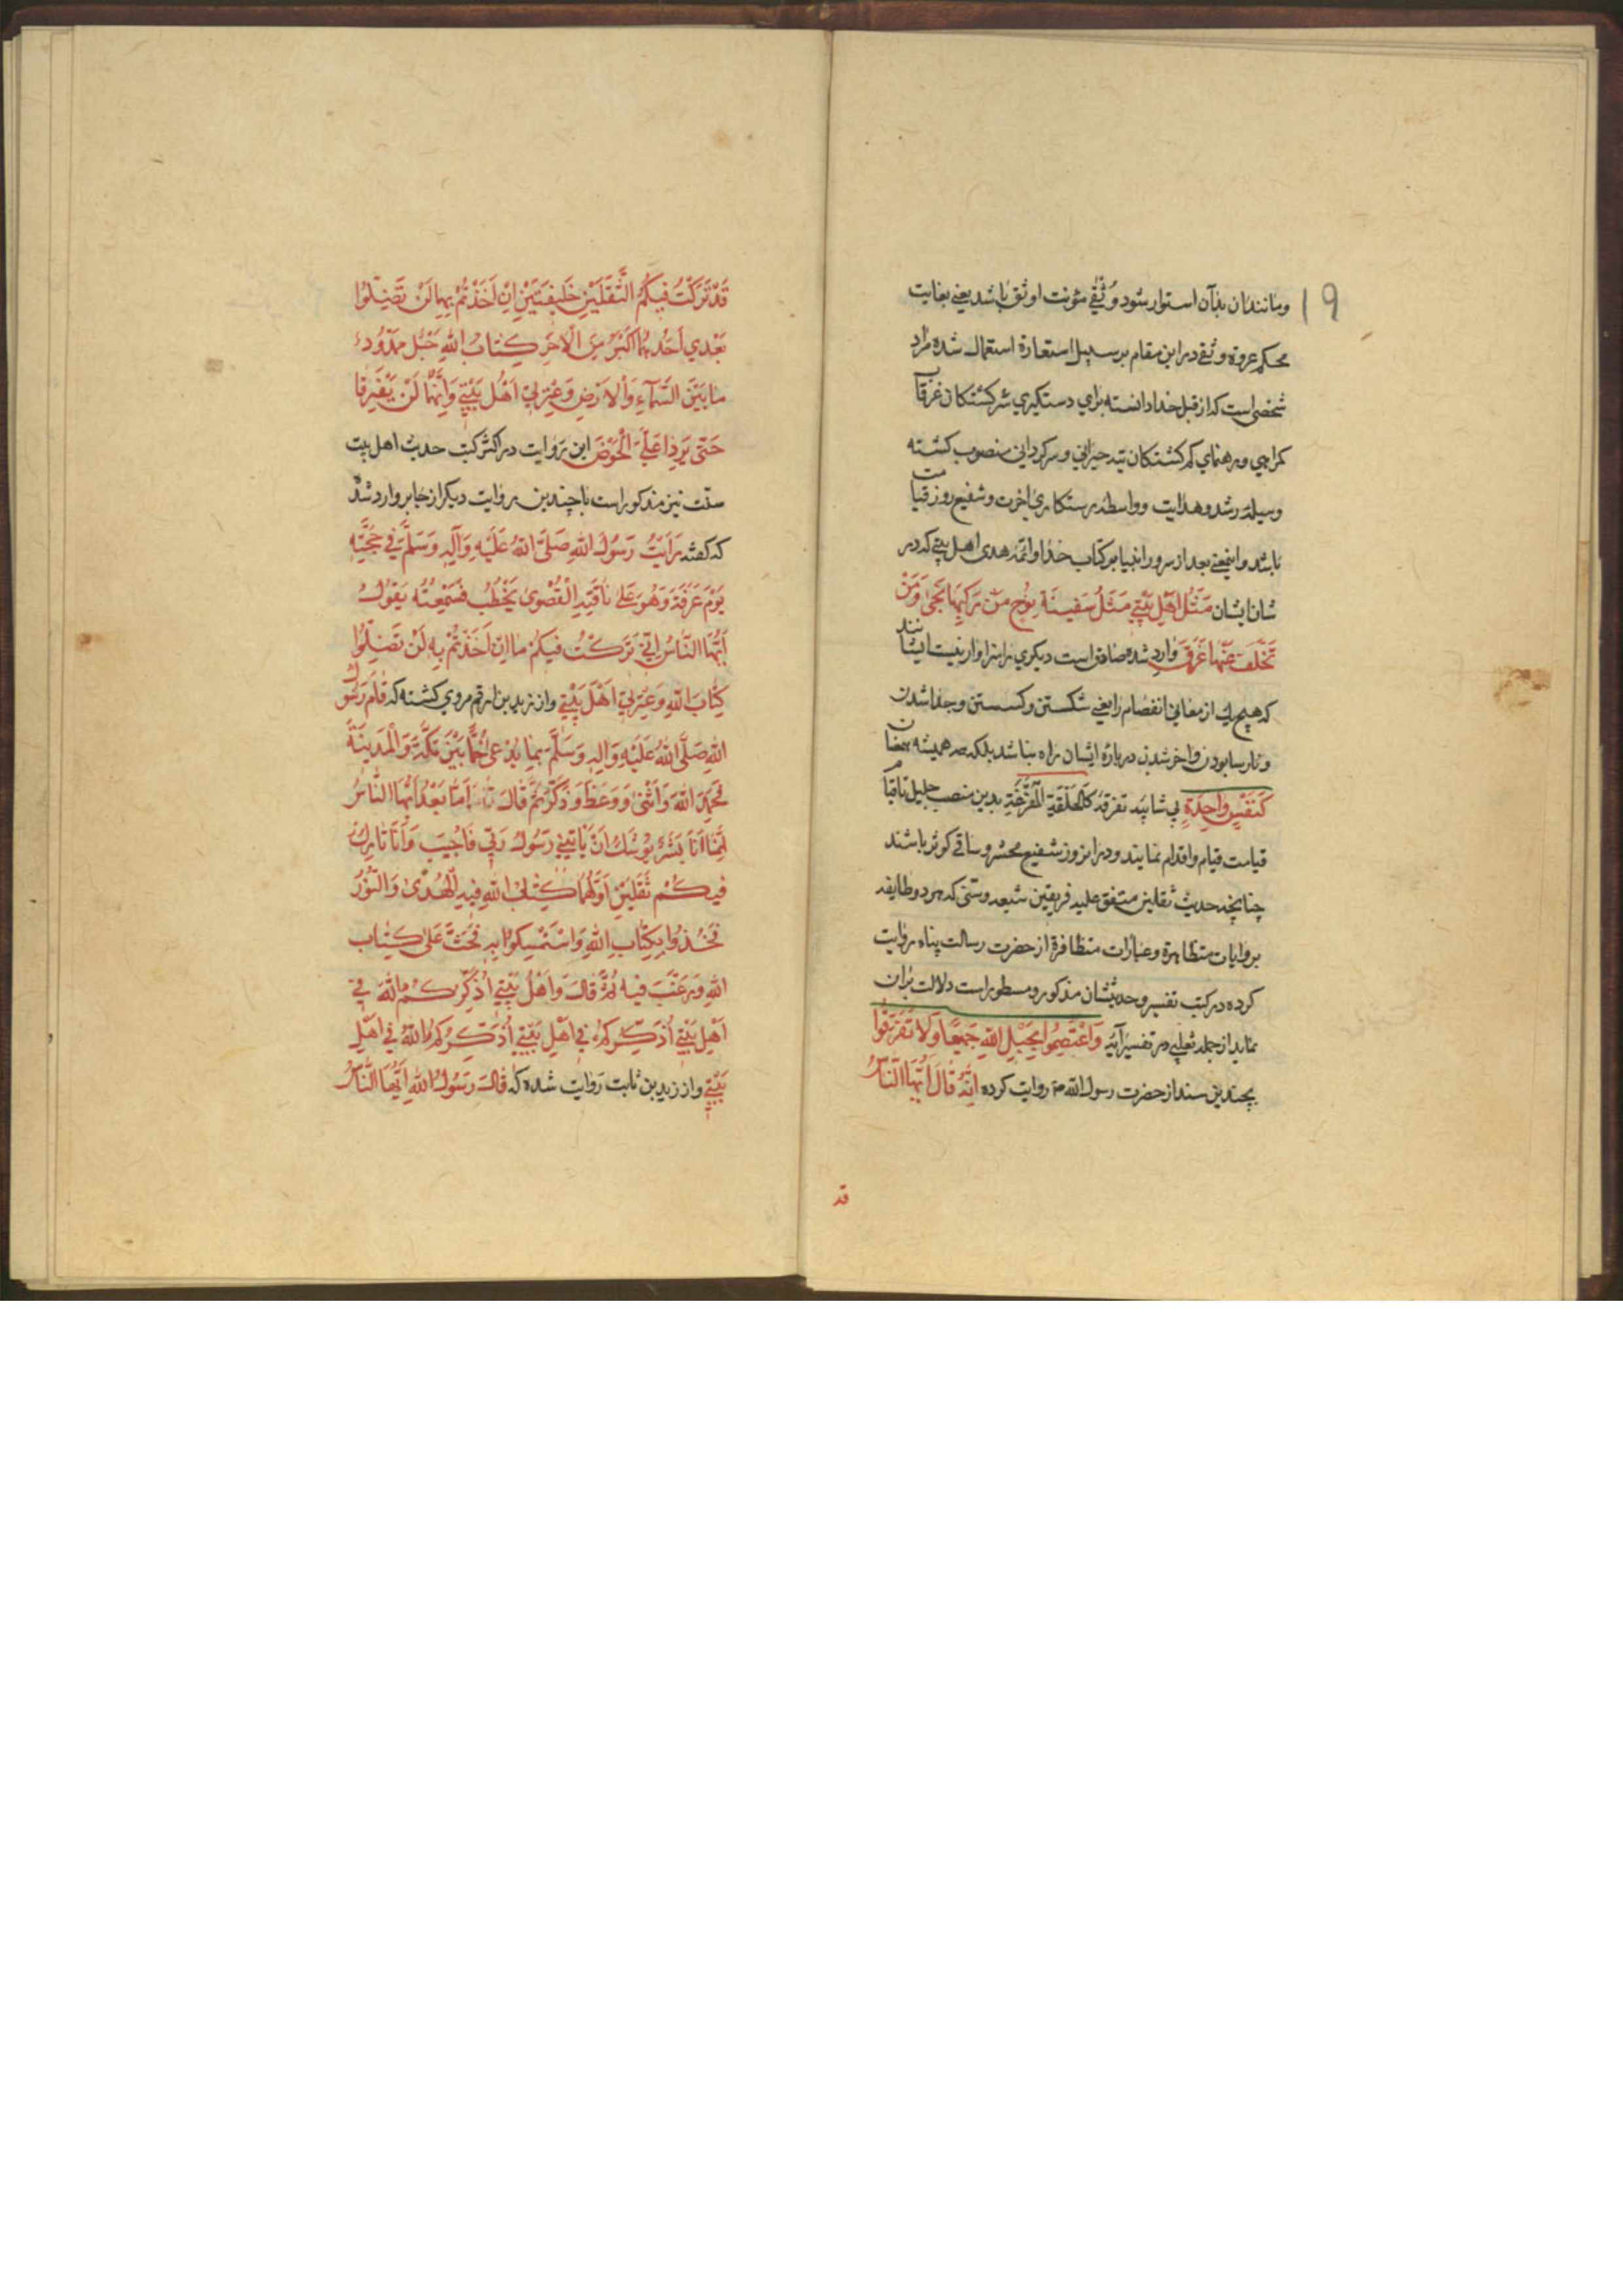 ۱۹
ومانند آن بدآن استوار شود وُثْقٰی مؤنث اوثق باشد یعنی بغایت
محکم عروة وثقی در این مقام بر سبیل استعارة استعمال شده مراد
شخصی است که از قبل خدا دانسته برای دستکیری سرکشتکان غرقاب
کمراهی و رهنمای کم کشتکان تیه حیرانی و سرکردانی منصوب کشته
وسیلهٔ رشد و هدایت و واسطهٔ رستکاری اخرت و شفیع روز قیامت
باشد و اینمعنی بعد از سرور انبیا بر کتاب خدا و ائمهٔ هدی اهل بیتی که در
شان ایشان مَثَلُ اَهْلِ بَیْتِی مَثَلُ سَفِینَةِ نُوحٍ مَنْ رَکِبَهَا نَجٰی وَمَنْ
تَخَلَّفَ عَنْهَا غَرَقَ وارد شده صادق است دیکری را سزاوار نیست ایشانند
که هیچ یک از معانی انفصام را یعنی شکستن و کسستن و جدا شدن
و نارسا بودن واخر شدن در بارهٔ ایشان راه نباشد بلکه همیشه
کَنَفْسٍ وَاحِدَةٍ بی شایبه تفرقه کَالْحَلْقَةِ الْمُفْرَغَةِ بدین منصب جلیل تا قیام
قیامت قیام و اقدام نمایند و در انروز شفیع محشر و ساقی کوثر باشند
چنانچه حدیث ثقلین متفق علیه فریقین شیعه و سنی که هر دو طایفه
بروایات متظاهرة و عبارات متظافرة از حضرت رسالت پناه روایت
کرده در کتب تفسیر و حدیثشان مذکور و مسطور است دلالت بران
نماید از جمله ثعلبی در تفسیر آیهٔ وَاعْتَصِمُوا بِحَبْلِ اللّٰهِ جَمِیعًا وَلَا تَفَرَّقُوا
بچندین سند از حضرت رسول الله ص روایت کرده اِنَّهُ قَالَ اَیُّهَا النَّاسُ
قد
قَدْ تَرَکْتُ فِیکُمُ الثَّقَلَیْنِ خَلِیفَتَیْنِ اِنْ اَخَذْتُمْ بِهِمَا لَنْ تَضِلُّوا
بَعْدِی اَحَدُهُمَا اَکْبَرُ مِنَ الْاٰخَرِ کِتَابُ اللّٰهِ حَبْلٌ مَمْدُودٌ
مَا بَیْنَ السَّمَآءِ وَالْاَرْضِ وَعِتْرَتِی اَهْلُ بَیْتِی وَاِنَّهُمَا لَنْ یَفْتَرِقَا
حَتّٰی یَرِدَا عَلَیَّ الْحَوْضَ این روایت در اکثر کتب حدیث اهل بیت
سنّت نیز مذکور است با چندین روایت دیکر از جابر وارد شده
که کفته رَاَیْتُ رَسُولَ اللهِ صَلَّی اللهُ عَلَیْهِ وَآلِهِ وَسَلَّمَ فِی حَجَّتِهِ
یَوْمَ عَرَفَةَ وَهُوَ عَلٰی نَاقَتِهِ الْقُصْوٰی یَخْطُبُ فَسَمِعْتُهُ یَقُولُ
اَیُّهَا النَّاسُ اِنِّی تَرَکْتُ فِیکُمْ مَا اِنْ اَخَذْتُمْ بِهِ لَنْ تَضِلُّوا
کِتَابَ اللّٰهِ وَعِتْرَتِی اَهْلَ بَیْتِی واز زید بن ارقم مروی کشته که قَامَ رَسُولُ
اللهِ صَلَّی اللهُ عَلَیْهِ وَآلِهِ وَسَلَّمَ بِمَا یُدْعٰی خُمًّا بَیْنَ مَکَّةَ وَالْمَدِینَةِ
فَحَمِدَ اللهَ وَاَثْنٰی وَوَعَظَ وَذَکَّرَ ثُمَّ قَالَ اَمَّا بَعْدُ اَیُّهَا النَّاسُ
اِنَّمَا اَنَا بَشَرٌ یُوشَكُ اَنْ یَاْتِیَنِی رَسُولُ رَبِّی فَاُجِیبَ وَاَنَا تَارِكٌ
فِیکُمْ ثَقَلَیْنِ اَوَّلُهُمَا کِتَابُ اللهِ فِیهِ الْهُدٰی وَالنُّورُ
فَخُذُوا بِکِتَابِ اللهِ وَاسْتَمْسِکُوا بِهِ فَحَثَّ عَلٰی کِتَابِ
اللهِ وَرَغَّبَ فِیهِ ثُمَّ قَالَ وَاَهْلُ بَیْتِی اُذَکِّرُکُمُ اللهَ فِی
اَهْلِ بَیْتِی اُذَکِّرُکُمْ فِی اَهْلِ بَیْتِی اُذَکِّرُکُمُ اللهَ فِی اَهْلِ
بَیْتِی واز زید بن ثابت روایت شده که قَالَ رَسُولُ اللهِ اَیُّهَا النَّاسُ